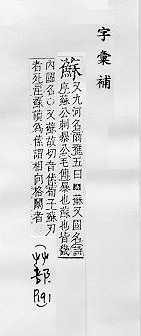 字彙補
蘇 又九河名爾雅五曰 蘇又國名詩
序蘇公刺暴公毛傳暴也蘇也皆畿
內國名○又蘇故切音傃荀子蘇刃
者死註蘇讀為傃謂相向格鬭者
(艸部 P.91)